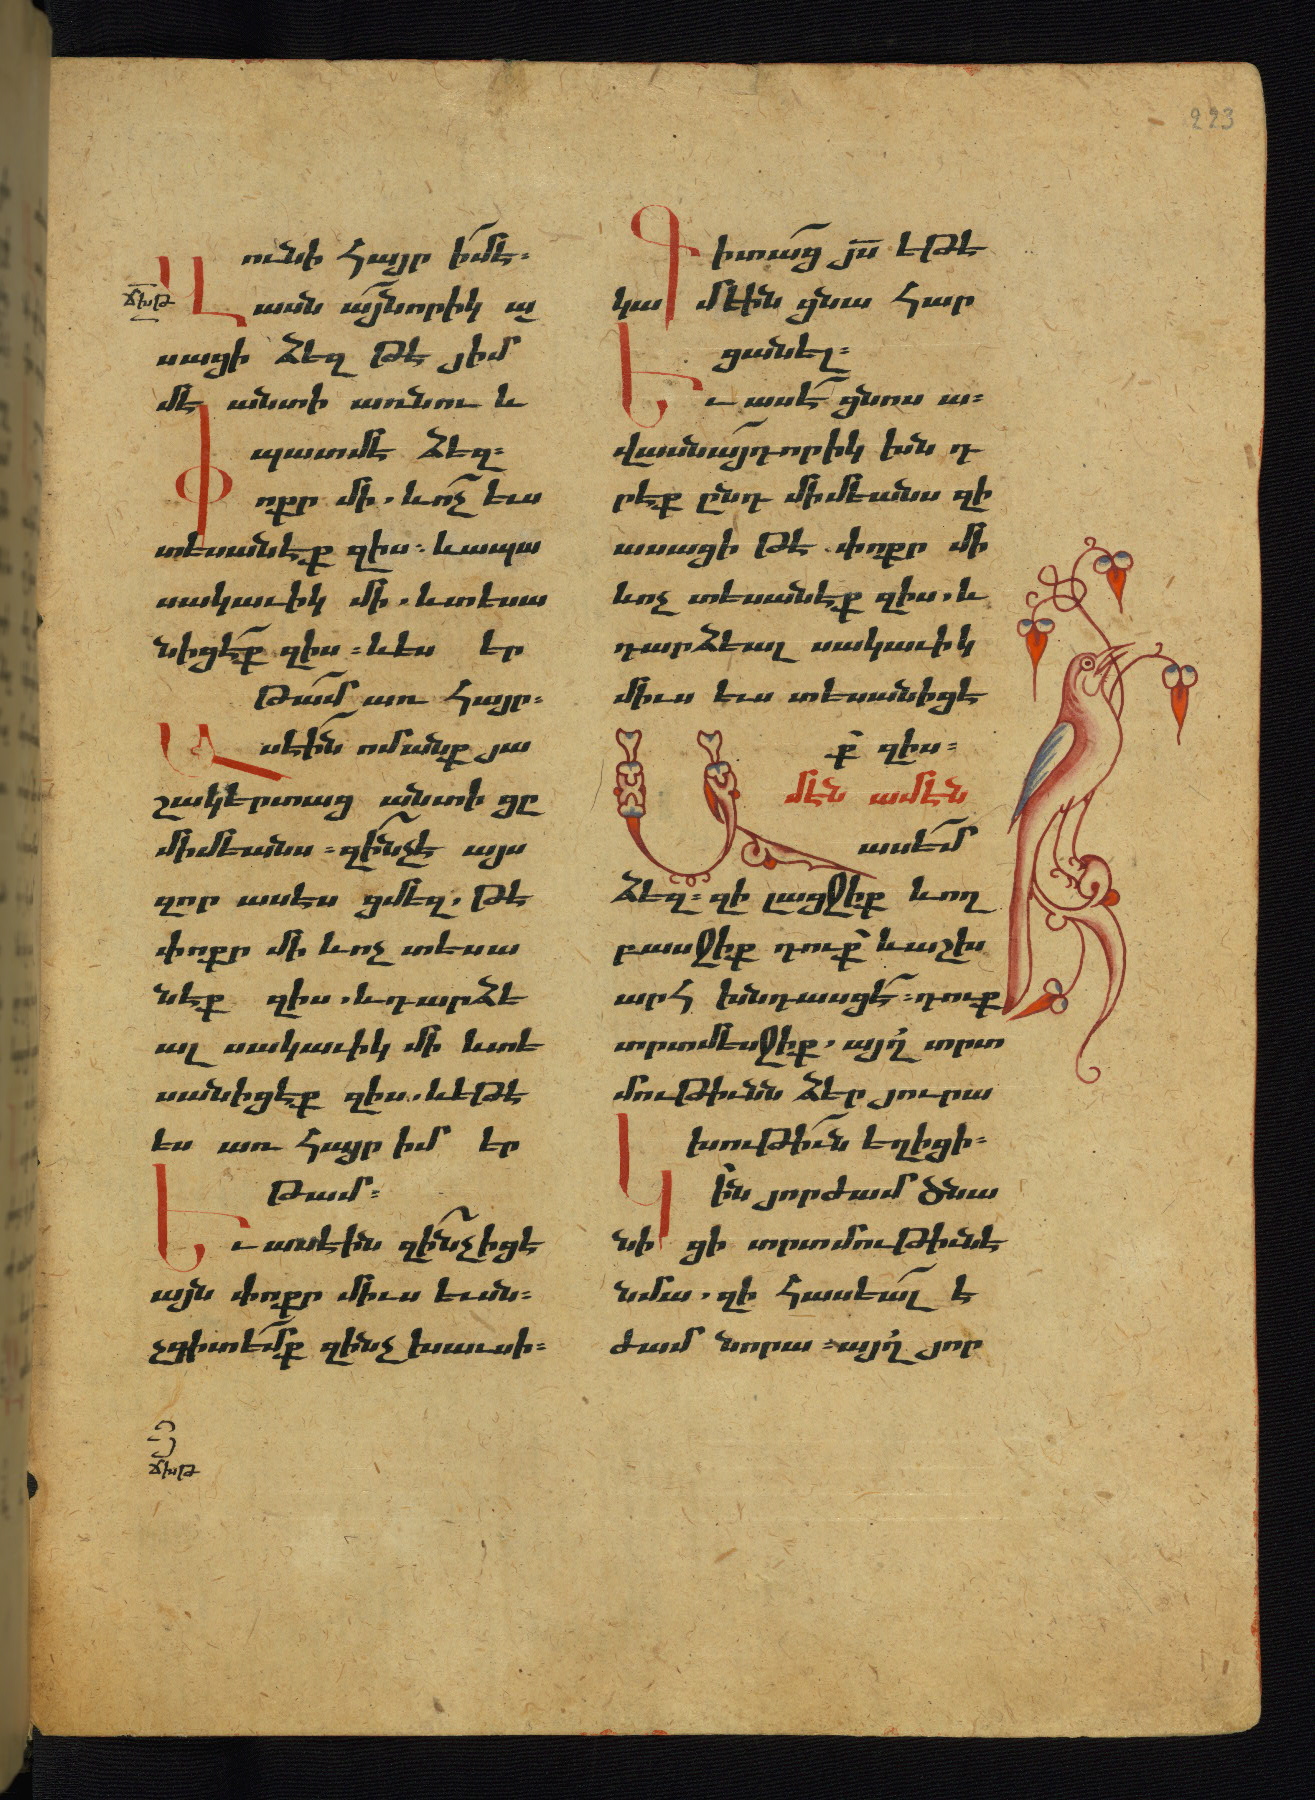 223
ունի Հայր իմ է:
ճխթ
Վասն այնորիկ ա
սացի ձեզ թէ յիմ
մէ անտի առնու և
պատմէ ձեզ:
Փոքր մի, և ոչ ևս
տեսանէք զիս: և ապա
սակաւիկ մի, և տեսա
նիցէք զիս: և ես եր
թամ առ Հայր:
Ասեին ոմանք յա
շակերտաց անտի ցը
միմեանս: զինչ է այս
զոր ասէս ցմեզ, թէ
փոքր մի և ոչ տեսա
նէք զիս, և դարձե
ալ սակաւիկ մի և տե
սանիցէք զիս, և եթէ
ես առ Հայր իմ եր
թամ:
Եւ ասեին զինչ իցէ
այն փոքր միւս ևսն:
չգիտեմք զինչ խաւսի:
ճխթ
Գիտաց յս եթէ
կամէին ցնա հար
ցանել:
Եւ ասէ ցնոսա:
վասն այդորիկ խնդ
րէք ընդ միմեանս զի
ասացի թէ փոքր մի
և ոչ տեսանէք զիս, և
դարձեալ սակաւիկ
միւս ևս տեսանիցէ
ք զիս:
Ամէն ամէն
ասեմ
ձեզ: զի լացջիք և ող
բասջիք դուք և աշխ
արհ խնդասցէ: դուք
տրտմեսջիք, այլ տրտ
մութիւնն ձեր յուրա
խութիւն եղիցի:
Կին յորժամ ծնա
նիցի տրտմութիւն է
նմա, զի հասեալ է
ժամ նորա: այլ յոր